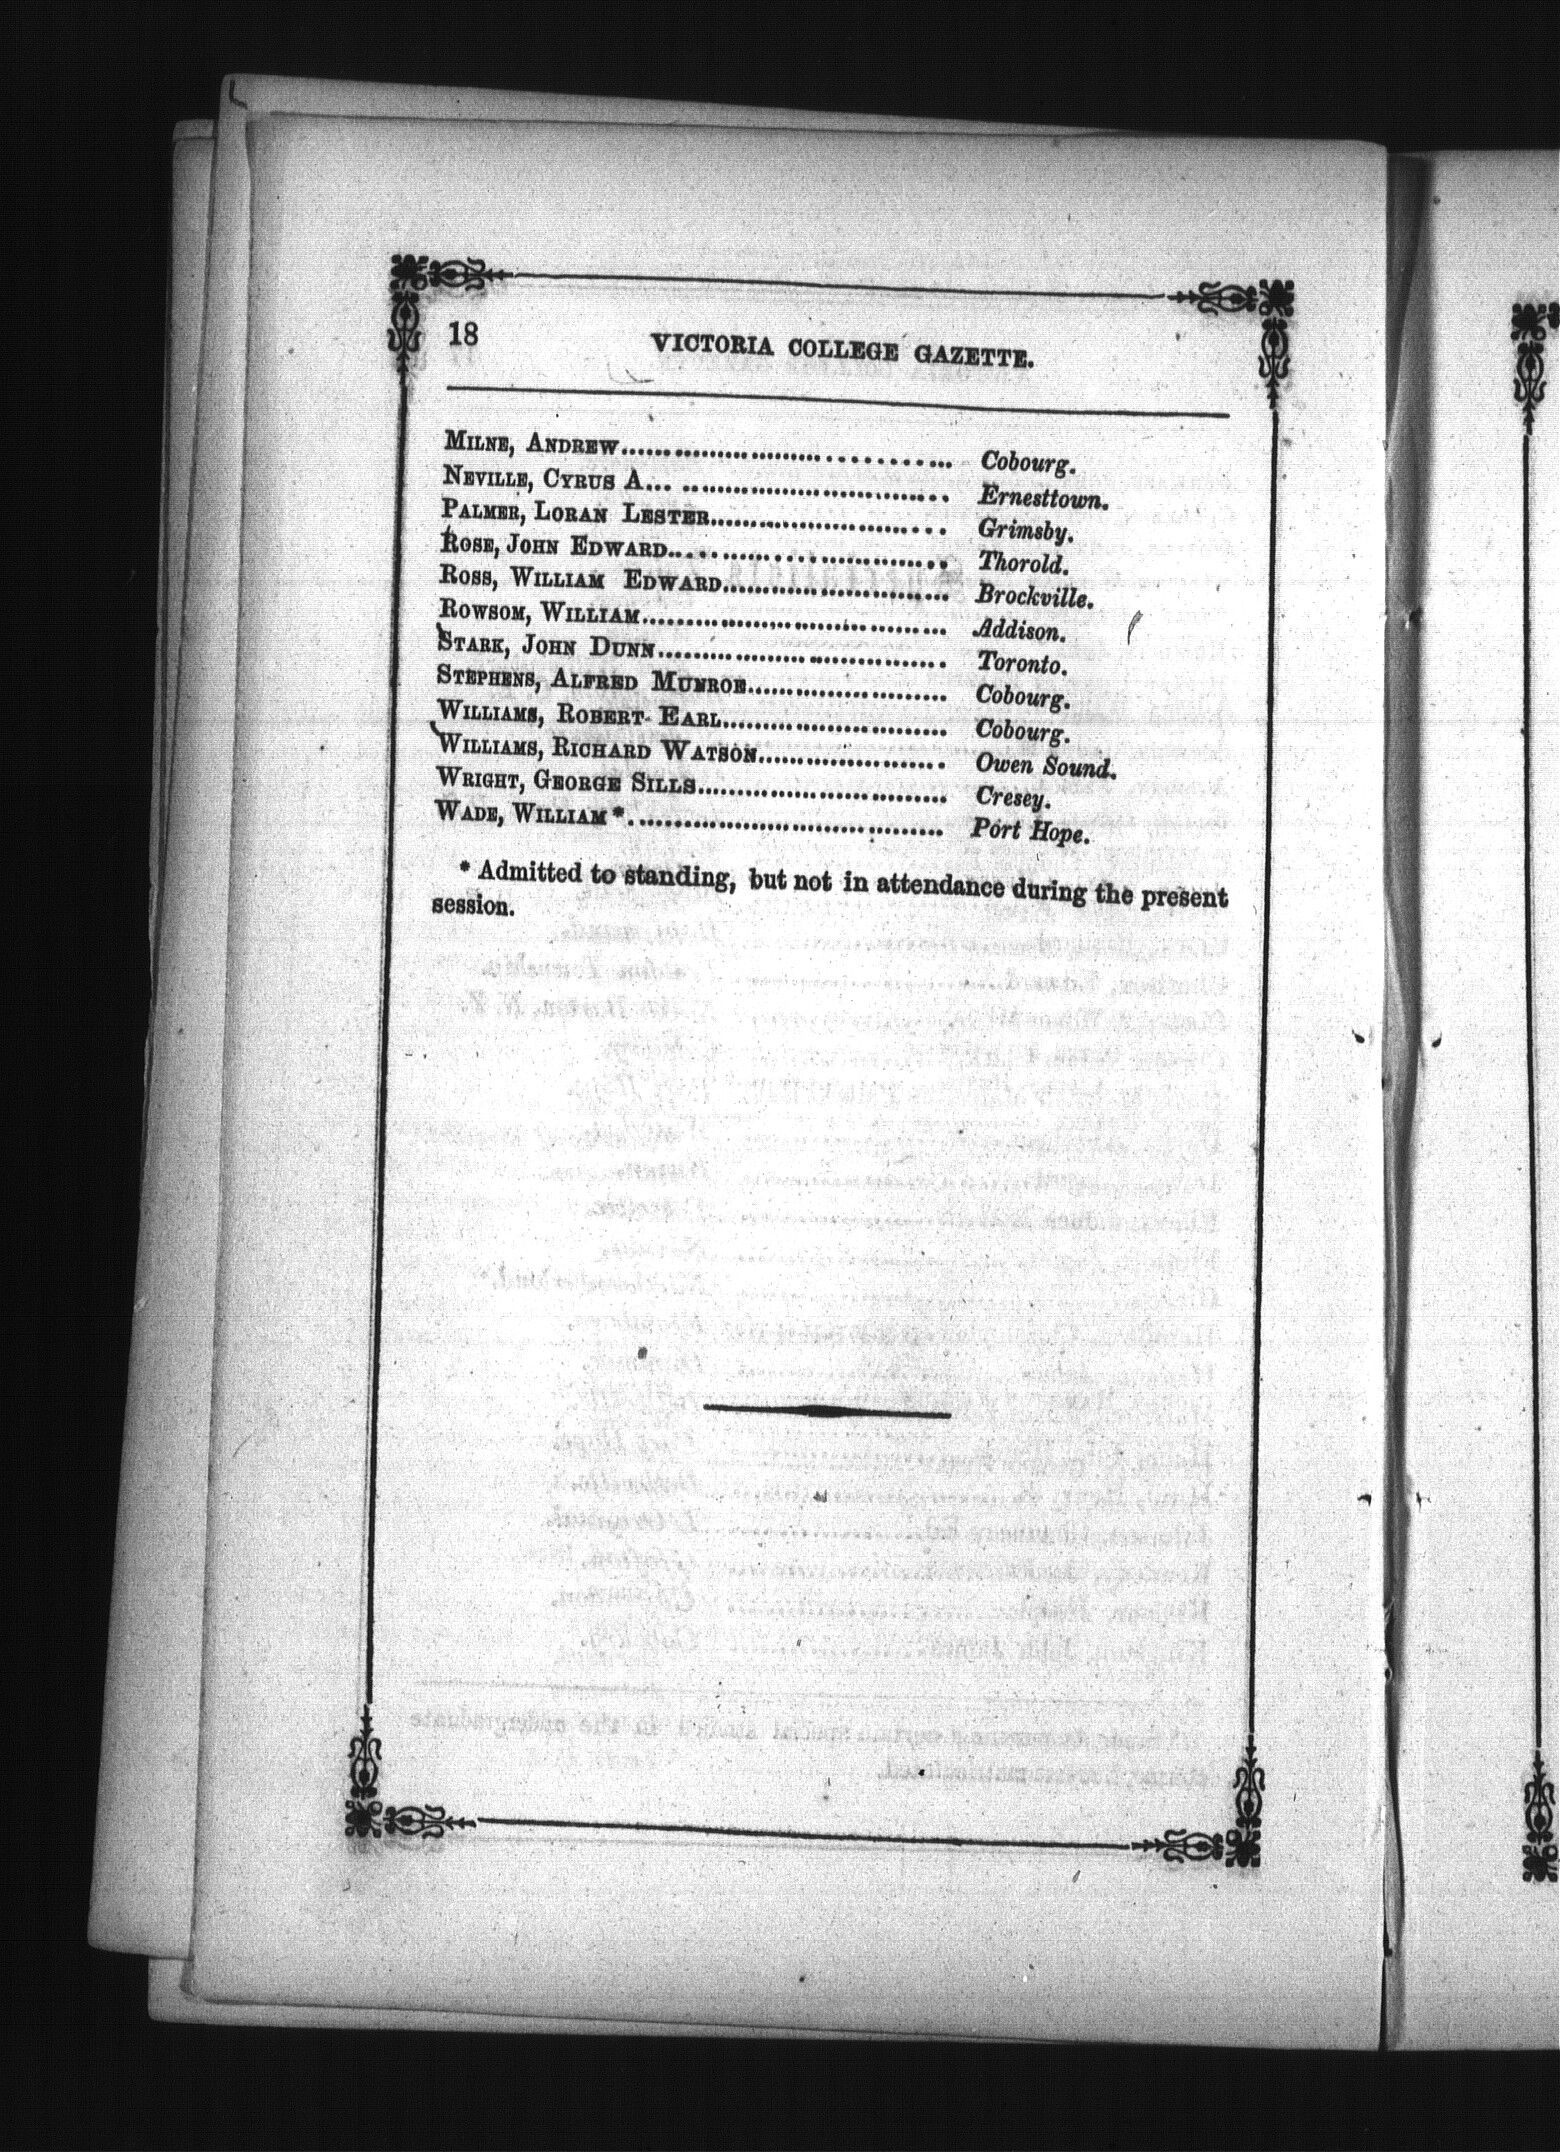 18 VICTORIA COLLEGE GAZETTE.
MILNE, ANDREW........................................ Cobourg.
NEVILLE, CYRUS A.................................... Ernesttown.
PALMER, LORAN LESTER............................ Grimsby.
ROSE, JOHN EDWARD................................ Thorold.
ROSS, WILLIAM EDWARD........................... Brockville.
ROWSOM, WILLIAM.................................... Addison.
STARK, JOHN DUNN.................................. Toronto.
STEPHENS, ALFRED MUNROE....................... Cobourg.
WILLIAMS, ROBERT EARL........................... Cobourg.
WILLIAMS, RICHARD WATSON...................... Owen Sound.
WRIGHT, GEORGE SILLS.............................. Cresey.
WADE, WILLIAM *....................................... Port Hope.
* Admitted to standing, but not in attendance during the present
session.